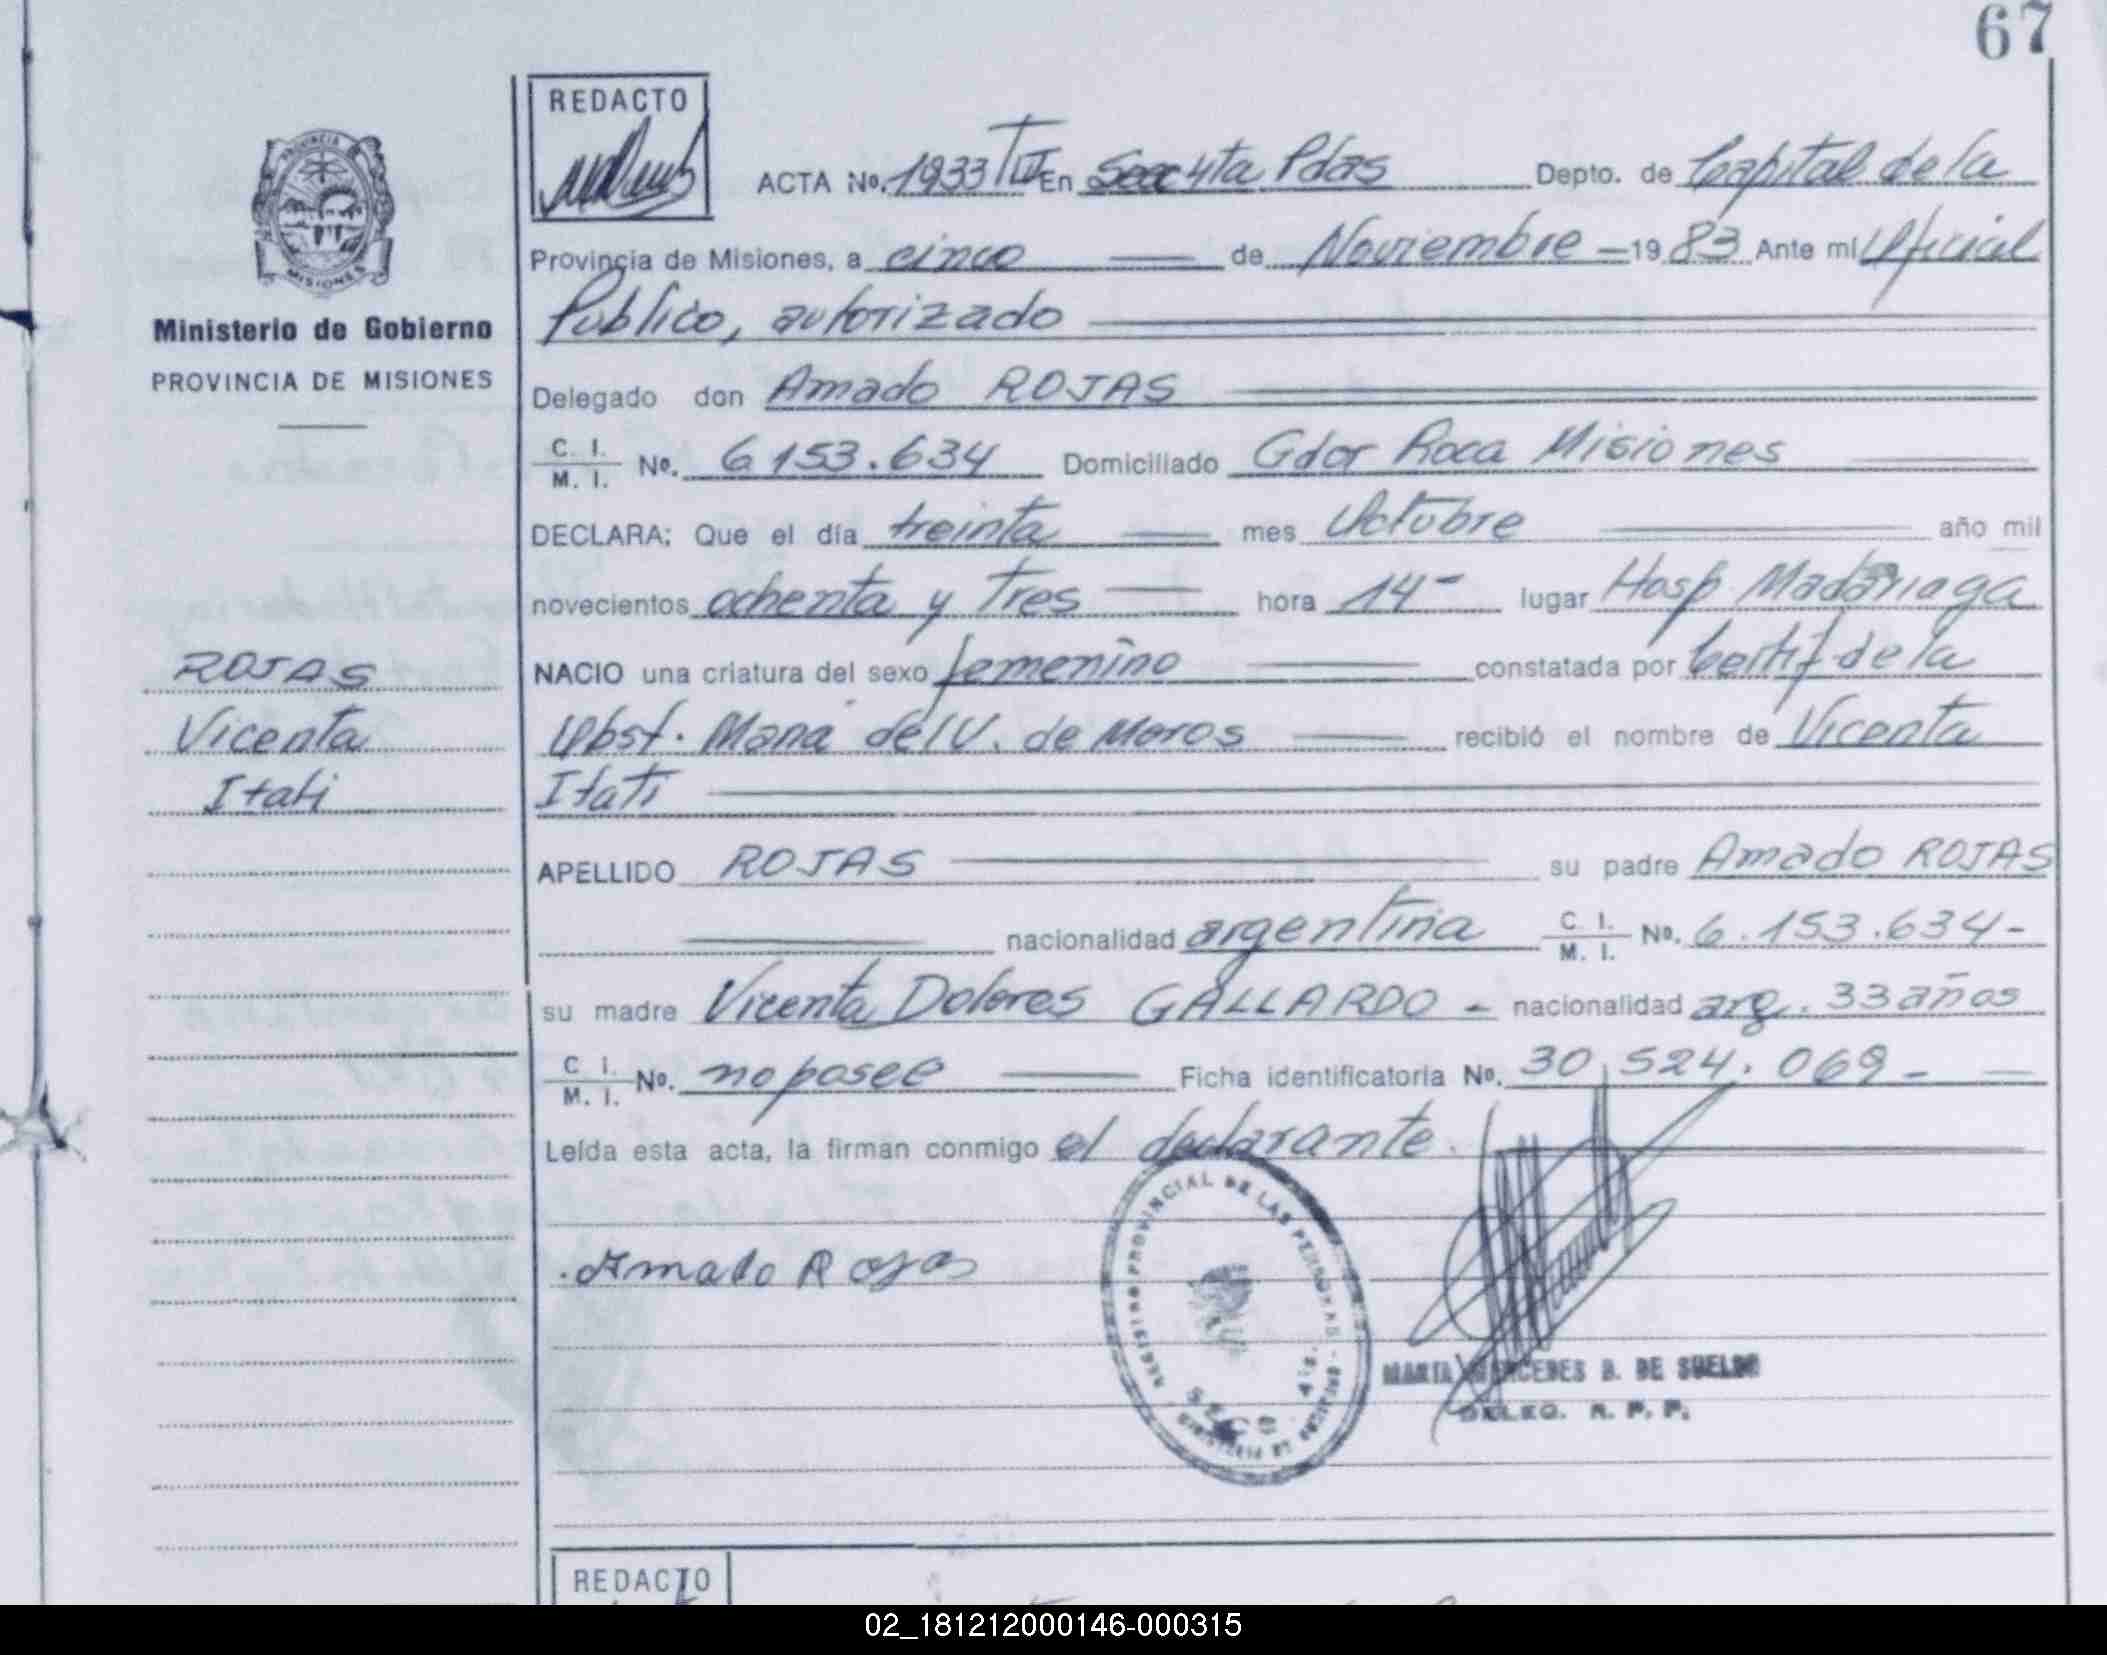 67
REDACTO
ACTA Nº. 1933 En Secc 4ta Pdas Depto. de Capital de la
PROVINCIA
MISIONES
Provincia de Misiones, a cinco de Noviembre - 1983 Ante mi Oficial
Publico, autorizado
Ministerio de Gobierno
PROVINCIA DE MISIONES
Delegado don Amado ROJAS
C. I.
M. I. Nº. 6153.634 Domiciliado Gdor Roca Misiones
DECLARA; Que el día treinta mes Octubre año mil
novecientos ochenta y Tres hora 14- lugar Hosp. Madariaga
NACIO una criatura del sexo femenino constatada por Certif. de la
Obst. Maria del V. de Moros recibió el nombre de Vicenta
Itati
ROJAS
Vicenta
Itati
APELLIDO ROJAS su padre Amado ROJAS
nacionalidad argentina C. I.
M. I. Nº. 6.153.634-
su madre Vicenta Dolores GALLARDO - nacionalidad arg. 33 años
C. I.
M. I. Nº. no posee Ficha identificatoria Nº. 30.524.069-
Leída esta acta, la firman conmigo el declarante.
Amado Rojas
REGISTRO PROVINCIAL DE LAS PERSONAS
MARTA MERCEDES B. DE SUELDO
DELEG. R. P. P.
REDACTO
02_181212000146-000315